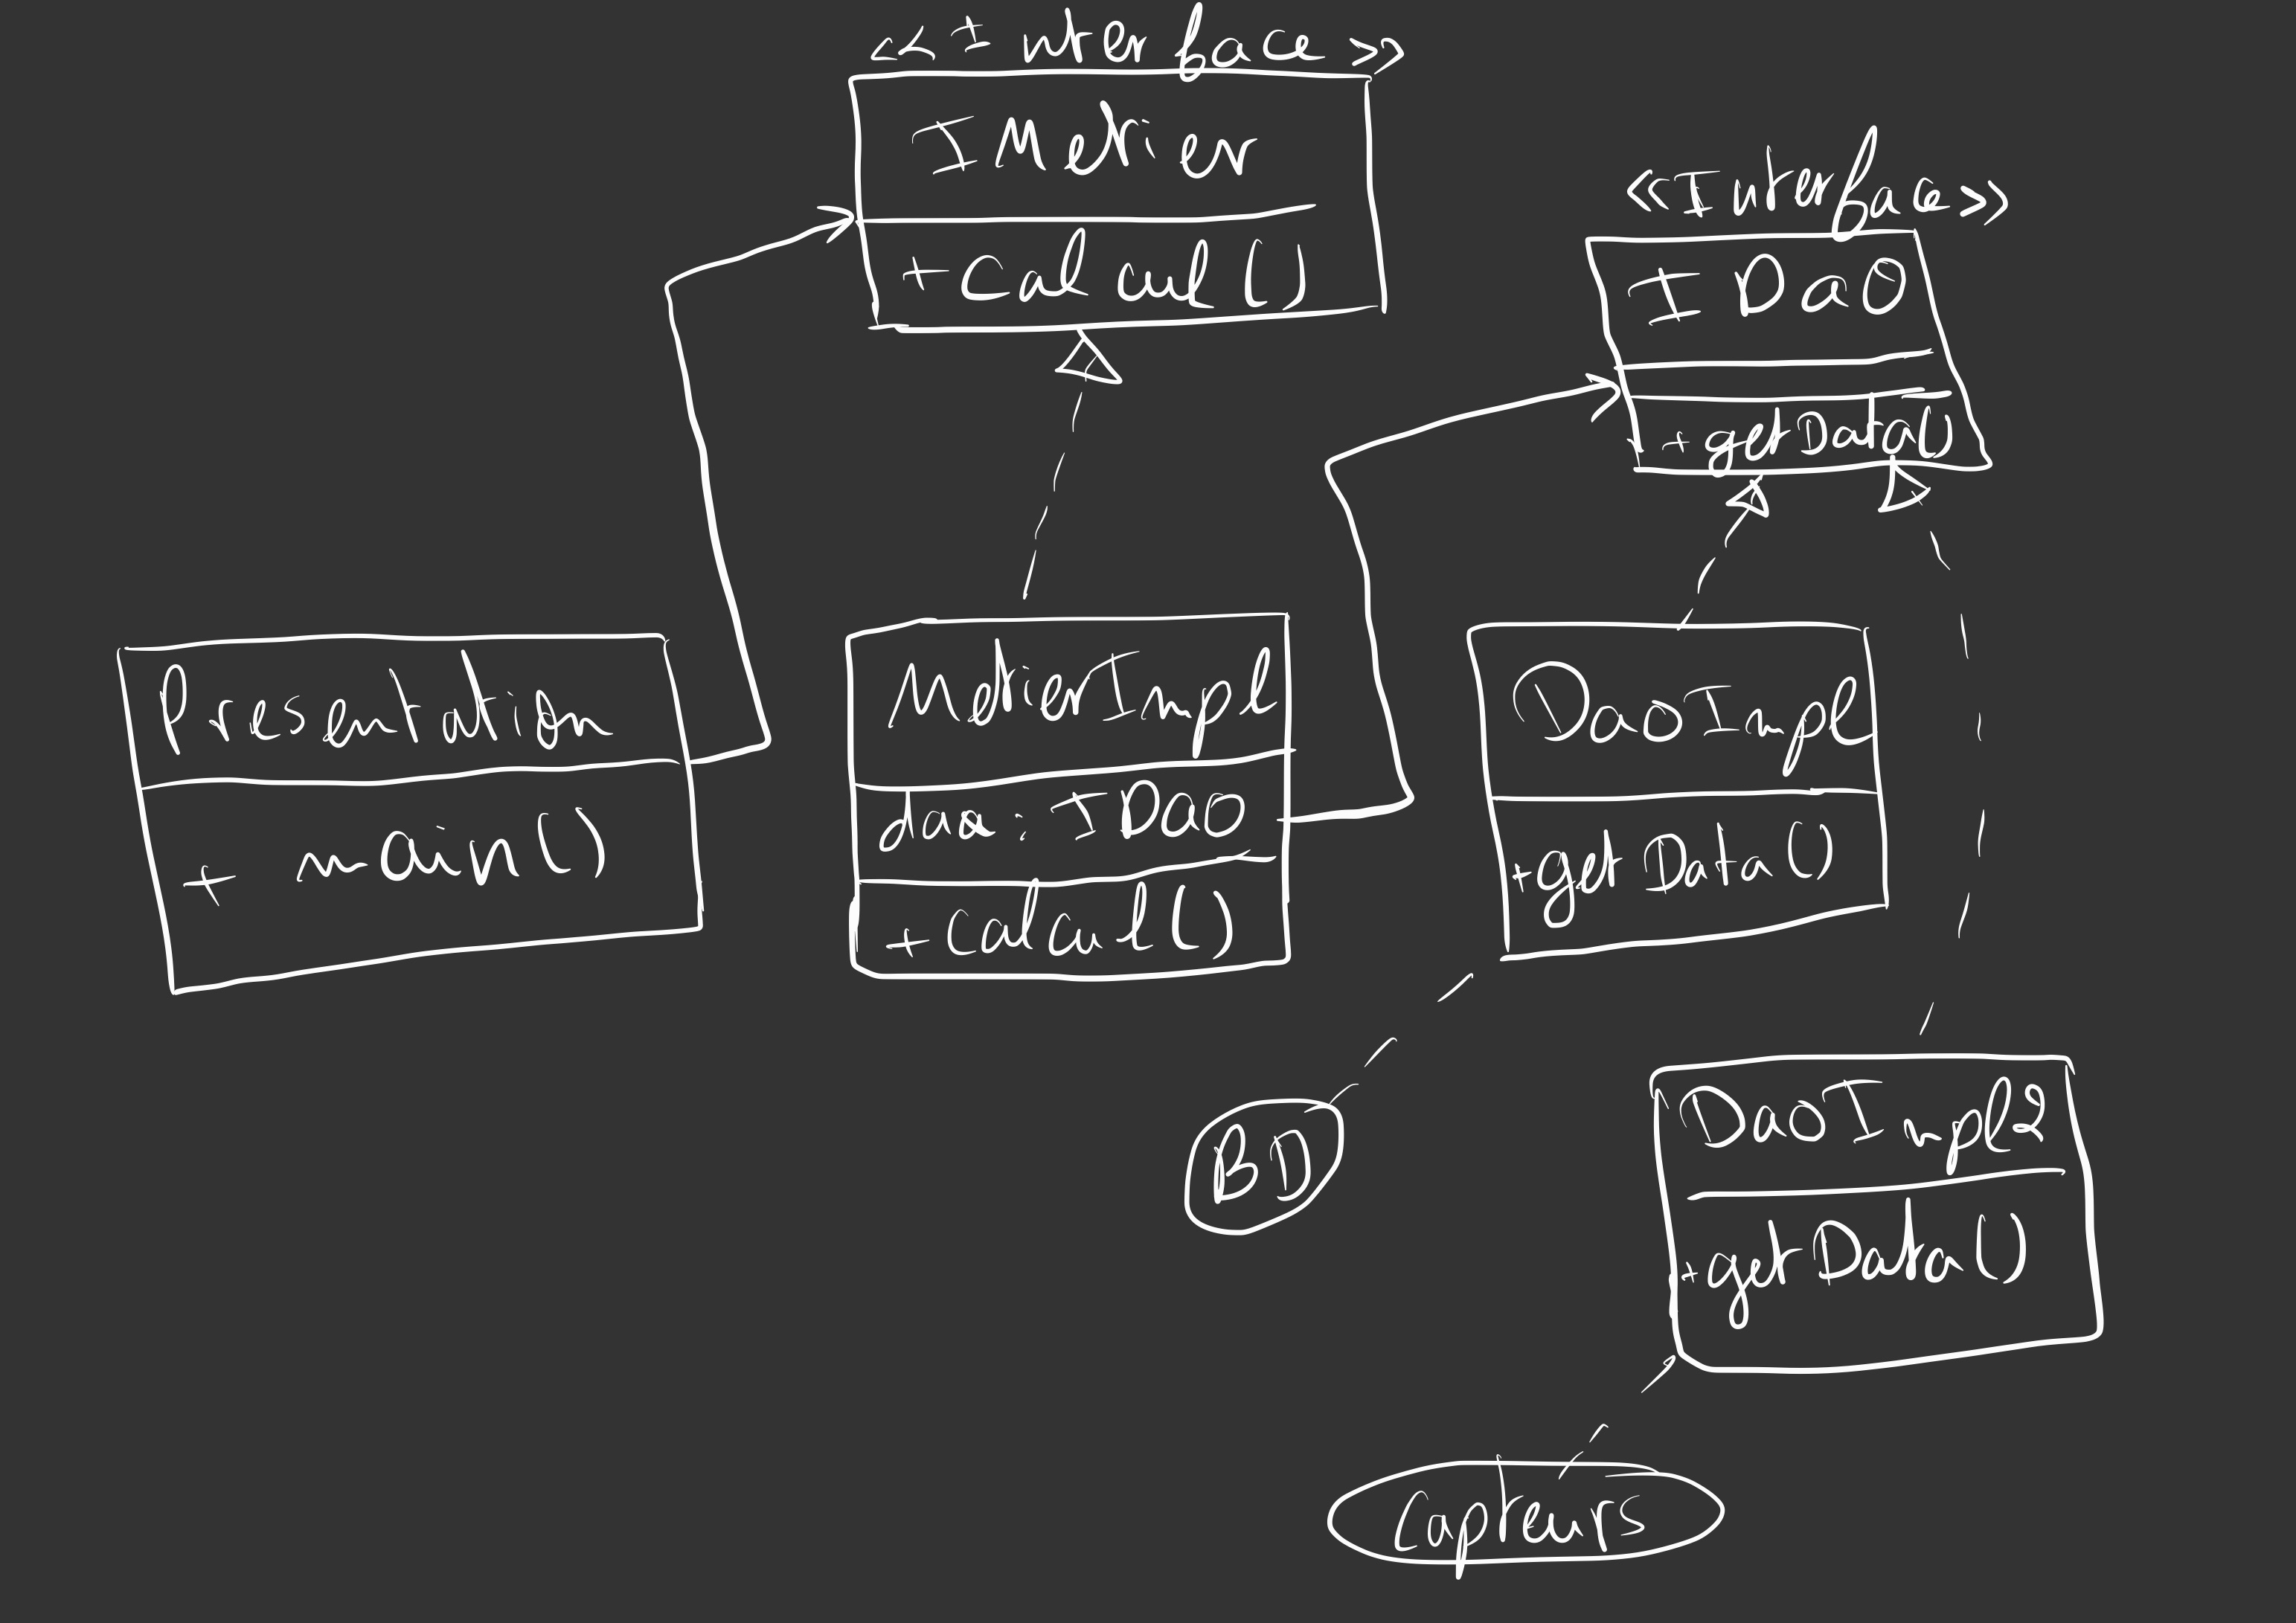 <<Interface>>
IMetier
+ Calcul()
<<Interface>>
IDao
+ getData()
Presentation
+ main()
MetierImpl
dao: IDao
+ Calcul()
DaoImpl
+getData()
BD
DaoImpl2
+getData()
Capteurs